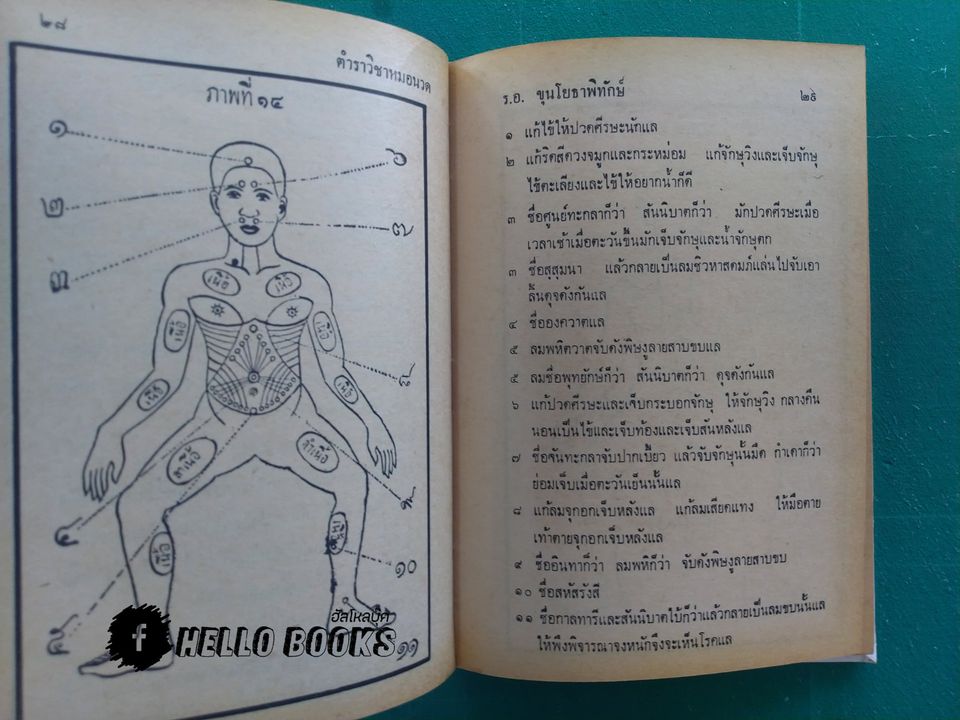 ๒๘
ตำราวิชาหมอนวด
ภาพที่ ๑๔
๑
๖
๒
๗
๓
เนื้อ
เนื้อ
เนื้อ
เนื้อ
๘
เนื้อ
เนื้อ
ลำเนื้อ
ลำเนื้อ
๙
๔
เนื้อ
เนื้อ
๑๐
๕
๑๑
ฮัลโหลบุ๊ค
f HELLO BOOKS
ร.อ. ขุนโยธาพิทักษ์
๒๙
๑ แก้ไข้ให้ปวดศีรษะนักแล
๒ แก้ริดสีดวงจมูกและกระหม่อม แก้จักษุวิงและเจ็บจักษุ
ไข้ตะเลียงและไข้ให้อยากน้ำก็ดี
๓ ชื่อศูนย์ทะกลาก็ว่า สันนิบาตก็ว่า มักปวดศีรษะเมื่อ
เวลาเช้าเมื่อตะวันขึ้นมักเจ็บจักษุและน้ำจักษุตก
๓ ชื่อสุสุมนา แล้วกลายเป็นลมชิวหาสดมภ์แล่นไปจับเอา
ลิ้นดุจดังกันแล
๔ ชื่อองควาตแล
๕ ลมพหิตวาตจับดังพิษงูลายสาบขบแล
๕ ลมชื่อพุทยักษ์ก็ว่า สันนิบาตก็ว่า ดุจดังกันแล
๖ แก้ปวดศีรษะและเจ็บกระบอกจักษุ ให้จักษุวิง กลางคืน
นอนเป็นไข้และเจ็บท้องและเจ็บสันหลังแล
๗ ชื่อจันทะกลาจับปากเบี้ยว แล้วจับจักษุนั้นมืด กำเดาก็ว่า
ย่อมเจ็บเมื่อตะวันเย็นนั้นแล
๘ แก้ลมจุกอกเจ็บหลังแล แก้ลมเสียดแทง ให้มือตาย
เท้าตายจุกอกเจ็บหลังแล
๙ ชื่ออินทาก็ว่า ลมพหิก็ว่า จับดังพิษงูลายสาบขบ
๑๐ ชื่อสหัสรังสี
๑๑ ชื่อกาลทารีและสันนิบาตใบ้ก็ว่าแล้วกลายเป็นลมขบนั้นแล
ให้พึงพิจารณาจงหนักจึงจะเห็นโรคแล